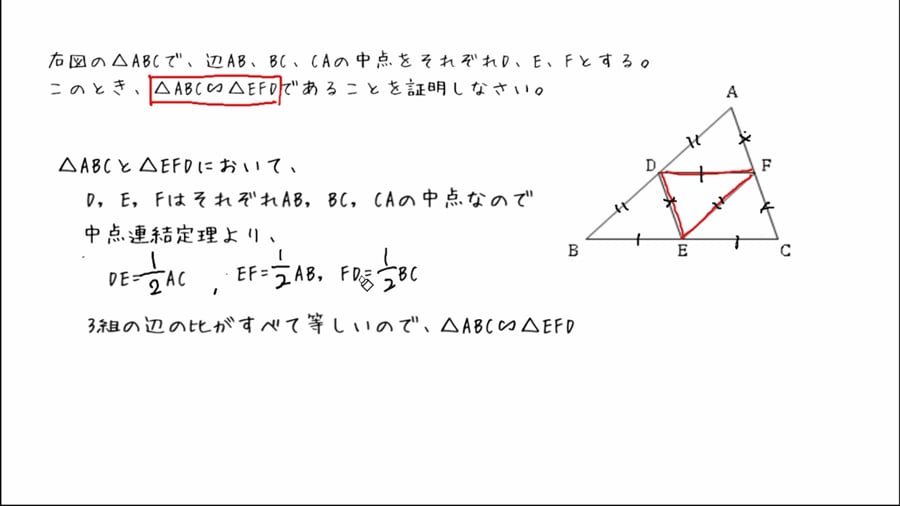 右図の△ABCで、辺AB、BC、CAの中点をそれぞれD、E、Fとする。
このとき、△ABC∽△EFDであることを証明しなさい。
△ABCと△EFDにおいて、
D, E, FはそれぞれAB, BC, CAの中点なので
中点連結定理より、
DE=1/2AC , EF=1/2AB, FD=1/2BC
3組の辺の比がすべて等しいので、△ABC∽△EFD
A
D F
B E C